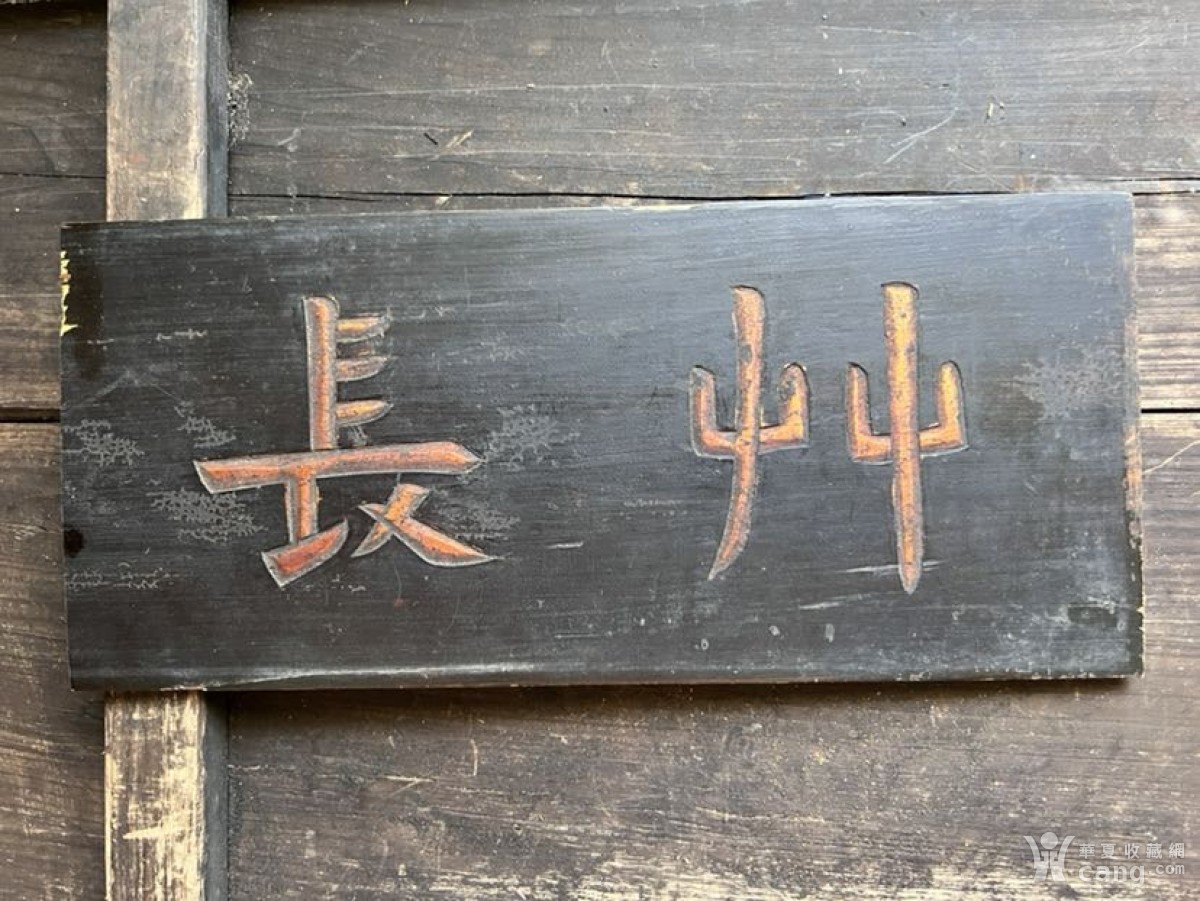 艸長
華夏·收藏網
cang.com